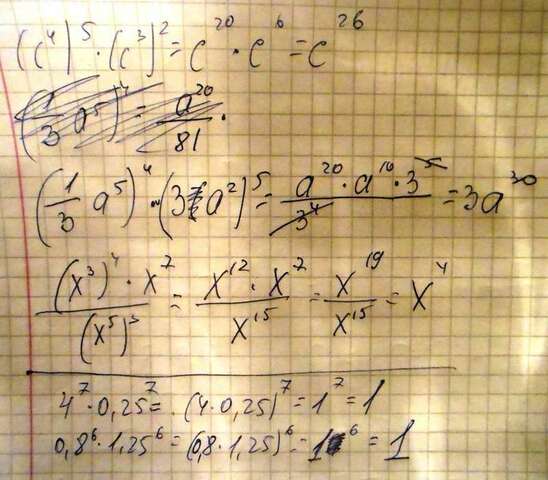 (c⁴)⁵ · (c³)² = c²⁰ · c⁶ = c²⁶
(1/3 a⁵)⁴ = a²⁰/81 .
(1/3 a⁵)⁴ · (3 a²)⁵ = a²⁰ · a¹⁰ · 3⁵ / 3⁴ = 3a³⁰
(x³)⁴ · x⁷ / (x⁵)³ = x¹² · x⁷ / x¹⁵ = x¹⁹ / x¹⁵ = x⁴
4⁷ · 0,25⁷ = (4 · 0,25)⁷ = 1⁷ = 1
0,8⁶ · 1,25⁶ = (0,8 · 1,25)⁶ = 1⁶ = 1